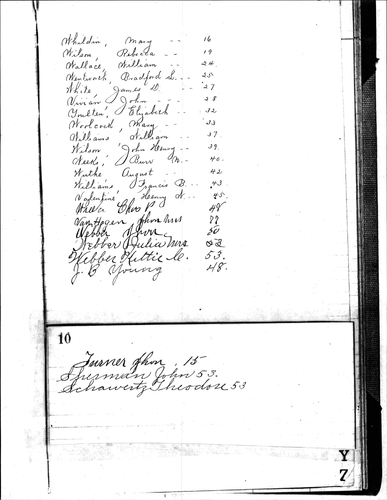 Whildin, Mary - - 16
Wilson, Rebecca - - 19
Wallace, William - - 24
Wentworth, Bradford L. - - 25
White, James D. - - 27
Vivian, John - - 28
Elizabeth - - 32
Woolcock, Mary - - 33
Williams William - - 37
Wilson John Henry - - 39
Weeks, Burr M. - - 40
Wuthe August - - 42
Williams, Francis B. - - 43
Valentine, Henry N. - - 45
Chas P. 48
Van Hagen John Mrs
Webber Jhon 50
Webber Julia Mrs
Webber Kittie C. 53.
J. C Young 48.
10
Turner Jhon. 15
Sherman John 53.
Schawertz Theodore 53
Y
7